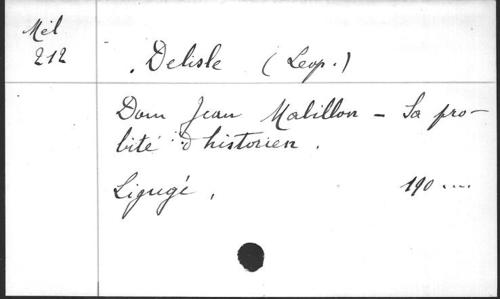 Mél
212
Delisle (Leop.)
Dom Jean Mabillon - Sa pro-
bité d'historien.
Ligugé, 190....